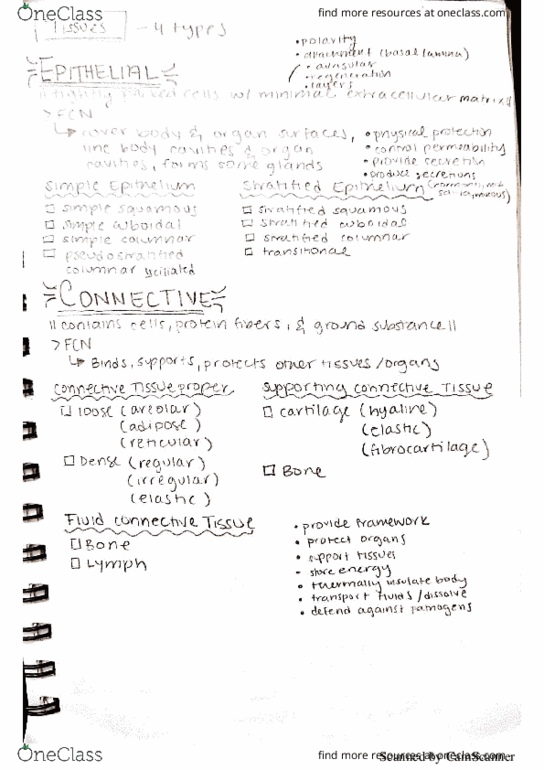 OneClass
find more resources at oneclass.com
Tissues - 4 types
• polarity
• attachment (basal lamina)
• avascular
• regeneration
• layers
EPITHELIAL
|| tightly packed cells w/ minimal extracellular matrix ||
> FCN
↳ cover body & organ surfaces,
line body cavities & organ
cavities, forms some glands
• physical protection
• control permeability
• provide secretion
• produce secretions
Simple Epithelium
□ simple squamous
□ simple cuboidal
□ simple columnar
□ pseudostratified
columnar ciliated
Stratified Epithelium
□ stratified squamous
□ stratified cuboidal
□ stratified columnar
□ transitional
CONNECTIVE
|| contains cells, protein fibers, & ground substance ||
> FCN
↳ Binds, supports, protects other tissues/organs
Connective Tissue proper
□ loose (areolar)
(adipose)
(reticular)
□ Dense (regular)
(irregular)
(elastic)
Supporting connective Tissue
□ cartilage (hyaline)
(elastic)
(fibrocartilage)
□ Bone
Fluid connective Tissue
□ Bone
□ Lymph
• provide framework
• protect organs
• support tissues
• store energy
• thermally insulate body
• transport fluids/dissolve
• defend against pathogens
OneClass
find more resources at oneclass.com
Scanned by CamScanner